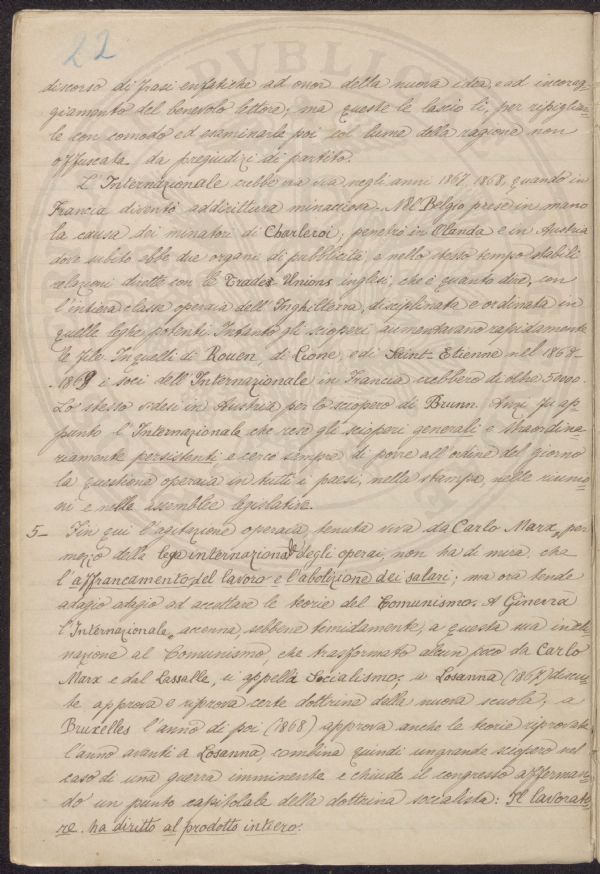 22
discorso di frasi enfatiche ad onor della nuova idea, e ad incorag-
giamento del benevolo lettore; ma queste le lascio lì, per ripigliar-
le con comodo ed esaminarle poi col lume della ragione non
offuscata da pregiudizi di partito.
L'Internazionale crebbe via via negli anni 1867, 1868, quando in
Francia diventò addirittura minacciosa. Nel Belgio prese in mano
la causa dei minatori di Charleroi; penetrò in Olanda e in Austria
dove subito ebbe due organi di pubblicità, e nello stesso tempo stabilì
relazioni dirette con le Trades Unions inglesi, che è quanto dire, con
l'intiera classe operaia dell'Inghilterra, disciplinata e ordinata in
quelle leghe potenti. Intanto gli scioperi aumentavano rapidamente
le file. In quelli di Rouen, di Lione, e di Saint-Etienne nel 1868-
-1869 i soci dell'Internazionale in Francia crebbero di oltre 50000.
Lo stesso videsi in Austria per lo sciopero di Brunn. Anzi fu ap-
punto l'Internazionale che rese gli scioperi generali e straordina-
riamente persistenti e cercò sempre di porre all'ordine del giorno
la questione operaia in tutti i paesi, nella stampa, nelle riunio-
ni e nelle assemblee legislative.
5- Fin qui l'agitazione operaia, tenuta viva da Carlo Marx, per
mezzo della lega internazionale degli operai, non ha di mira che
l'affrancamento del lavoro e l'abolizione dei salari; ma ora tende
adagio adagio ad accettare le teorie del Comunismo. A Ginevra
l'Internazionale accenna, sebbene timidamente, a questa sua incli-
nazione al Comunismo, che trasformato alcun poco da Carlo
Marx e dal Lassalle, si appella Socialismo; a Losanna (1867) discu-
te approva e riprova certe dottrine della nuova scuola; a
Bruxelles l'anno di poi (1868) approva anche le teorie riprovate
l'anno avanti a Losanna, combina quindi un grande sciopero nel
caso di una guerra imminente e chiude il congresso afferman-
do un punto capitolale della dottrina socialista: Il lavorato-
re ha diritto al prodotto intiero.